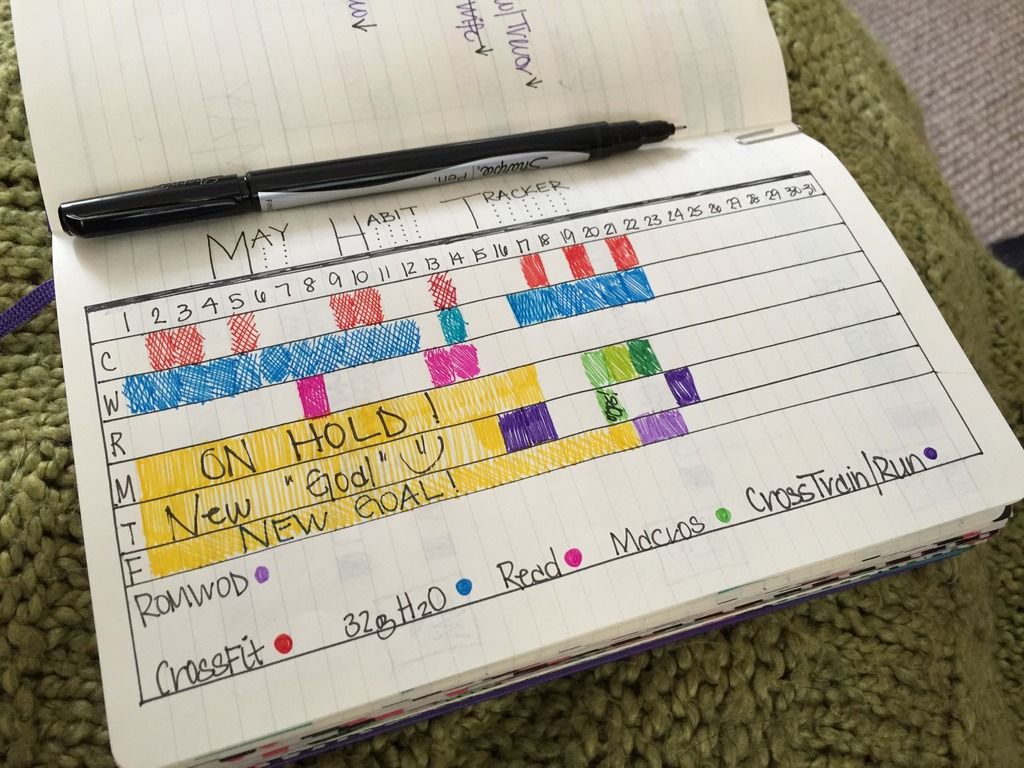 w/Trvor
Sharpie. Pen.
MAY HABIT TRACKER
1 2 3 4 5 6 7 8 9 10 11 12 13 14 15 16 17 18 19 20 21 22 23 24 25 26 27 28 29 30 31
C
W
R
M ON HOLD!
T New "Goal"
F NEW GOAL!
ROMWOD
CrossFit 32oz H2O Read Macros CrossTrain/Run